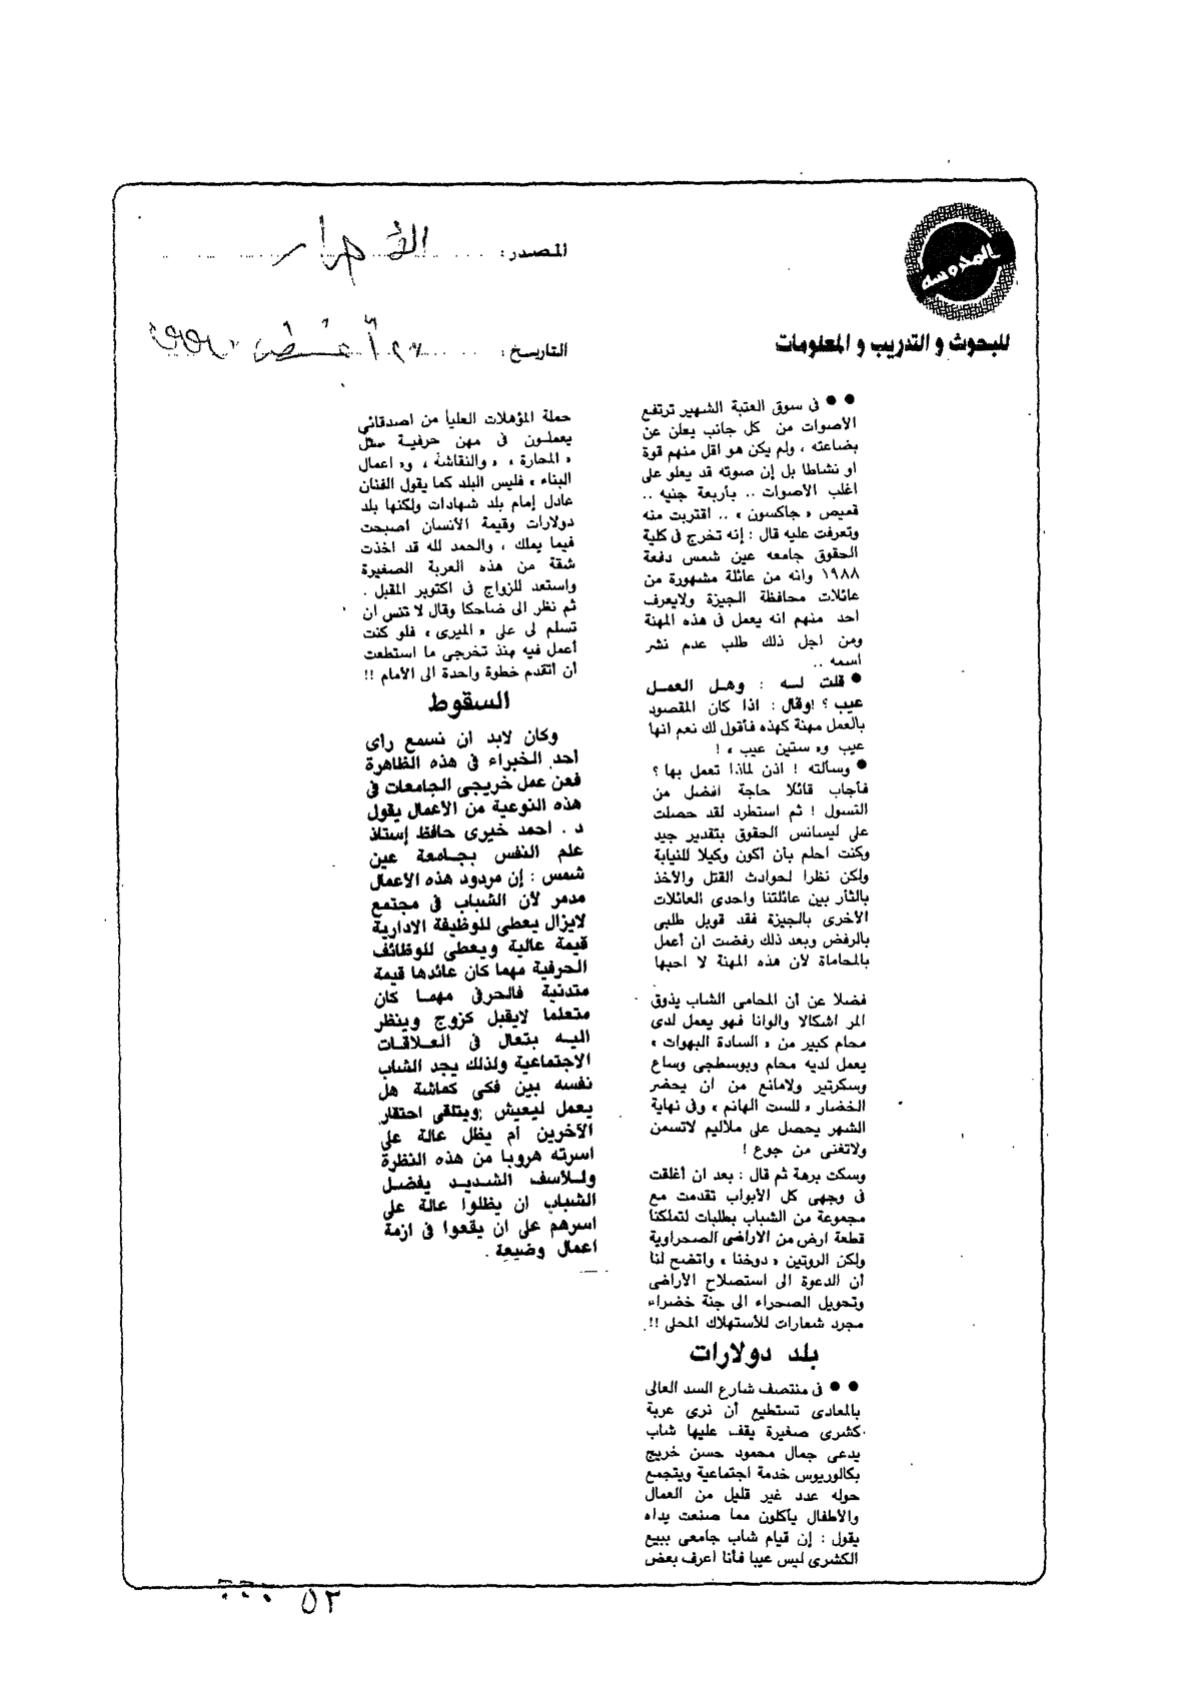 المدوسه
للبحوث و التدريب و المعلومات
المصدر : الأحرار
التاريخ : أغسطس
● ● فى سوق العتبة الشهير ترتفع
الأصوات من كل جانب يعلن عن
بضاعته ، ولم يكن هو اقل منهم قوة
او نشاطا بل إن صوته قد يعلو على
اغلب الأصوات .. بأربعة جنيه ..
قميص « جاكسون » .. اقتربت منه
وتعرفت عليه قال : إنه تخرج فى كلية
الحقوق جامعه عين شمس دفعة
١٩٨٨ وانه من عائلة مشهورة من
عائلات محافظة الجيزة ولايعرف
احد منهم انه يعمل فى هذه المهنة
ومن اجل ذلك طلب عدم نشر
اسمه ..
● قلت لـه : وهـل العمـل
عيب ؟ !وقال : اذا كان المقصود
بالعمل مهنة كهذه فأقول لك نعم انها
عيب و« ستين عيب » !
● وسألته ! اذن لماذا تعمل بها ؟
فأجاب قائلا حاجة افضل من
التسول ! ثم استطرد لقد حصلت
على ليسانس الحقوق بتقدير جيد
وكنت احلم بأن أكون وكيلا للنيابة
ولكن نظرا لحوادث القتل والأخذ
بالثأر بين عائلتنا واحدى العائلات
الأخرى بالجيزة فقد قوبل طلبى
بالرفض وبعد ذلك رفضت ان أعمل
بالمحاماة لأن هذه المهنة لا احبها
فضلا عن أن المحامى الشاب يذوق
المر اشكالا والوانا فهو يعمل لدى
محام كبير من « السادة البهوات »
يعمل لديه محام وبوسطجى وساع
وسكرتير ولامانع من ان يحضر
الخضار « للست الهانم » وفى نهاية
الشهر يحصل على ملاليم لاتسمن
ولاتغنى من جوع !
وسكت برهة ثم قال : بعد ان أغلقت
فى وجهى كل الأبواب تقدمت مع
مجموعة من الشباب بطلبات لتملكنا
قطعة ارض من الاراضى الصحراوية
ولكن الروتين « دوخنا » واتضح لنا
أن الدعوة الى استصلاح الأراضى
وتحويل الصحراء الى جنة خضراء
مجرد شعارات للأستهلاك المحلى !!
بلد دولارات
● ● فى منتصف شارع السد العالى
بالمعادى تستطيع أن نرى عربة
كشرى صغيرة يقف عليها شاب
يدعى جمال محمود حسن خريج
بكالوريوس خدمة اجتماعية ويتجمع
حوله عدد غير قليل من العمال
والأطفال يأكلون مما صنعت يداه
يقول : إن قيام شاب جامعى ببيع
الكشرى ليس عيبا فأنا اعرف بعض
حملة المؤهلات العليا من اصدقائي
يعملـون فى مهن حرفيـة مثل
« المحارة » ، والنقاشة ، و« اعمال
البناء » فليس البلد كما يقول الفنان
عادل إمام بلد شهادات ولكنها بلد
دولارات وقيمة الأنسان اصبحت
فيما يملك ، والحمد لله قد اخذت
شقة من هذه العربة الصغيرة
واستعد للزواج فى اكتوبر المقبل .
ثم نظر الى ضاحكا وقال لا تنس ان
تسلم لى على « الميرى » فلو كنت
أعمل فيه منذ تخرجى ما استطعت
أن أتقدم خطوة واحدة الى الأمام !!
السقوط
وكان لابد ان نسمع رأى
أحد الخبراء فى هذه الظاهرة
فعن عمل خريجى الجامعات فى
هذه النوعية من الأعمال يقول
د . احمد خيرى حافظ إستاذ
علم النفس بجـامعة عين
شمس : إن مردود هذه الاعمال
مدمر لأن الشباب فى مجتمع
لايزال يعطى للوظيفة الادارية
قيمة عالية ويعطى للوظائف
الحرفية مهما كان عائدها قيمة
متدنية فالحرفى مهمـا كان
متعلما لايقبل كزوج وينظر
اليـه بتعال فى العـلاقـات
الاجتماعية ولذلك يجد الشباب
نفسه بين فكى كماشة هل
يعمل ليعيش ويتلقى احتقار
الآخرين أم يظل عالة على
اسرته هروبا من هذه النظرة
ولـلأسف الشديـد يفضـل
الشباب ان يظلوا عالة على
اسرهم على ان يقعوا فى ازمة
اعمال وضيعة .
٥٢